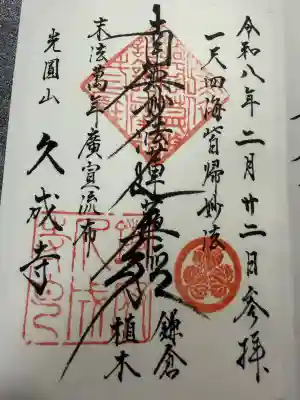 令和八年二月廿二日参拝
一天四海皆帰妙法
南無妙法蓮華経
鎌倉
植木
末法萬年廣宣流布
光圓山 久成寺